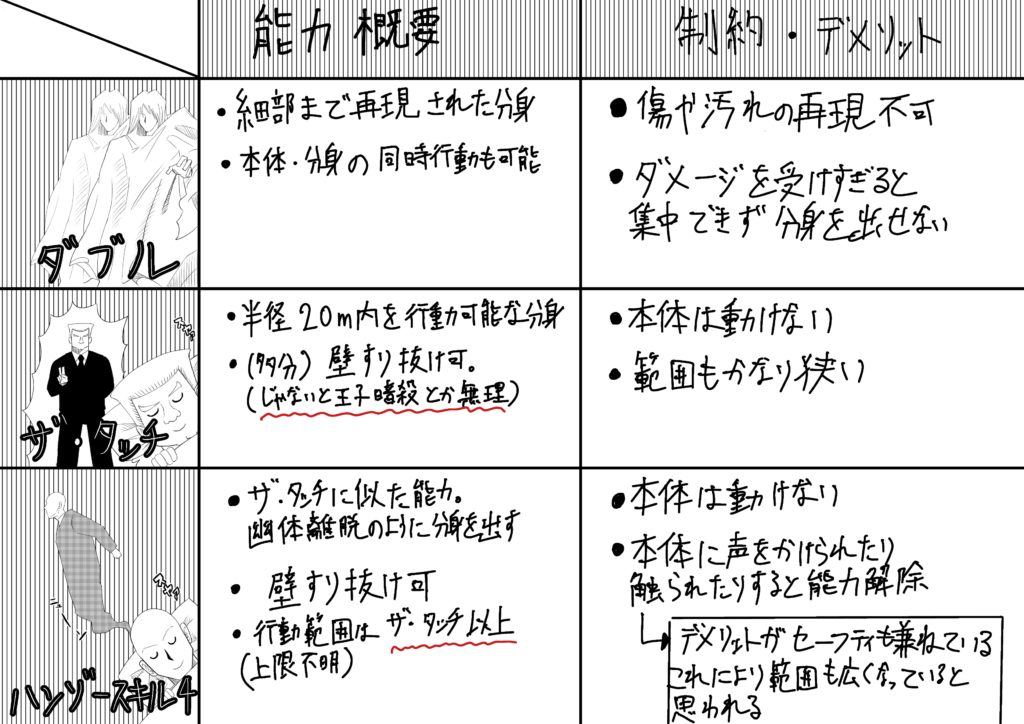 能力 概要
制約・デメリット
ダブル
・細部まで再現された分身
・本体・分身の同時行動も可能
・傷や汚れの再現不可
・ダメージを受けすぎると
集中できず分身を出せない
スペ〃
ザ・タッチ
・半径20m内を行動可能な分身
・(多分)壁すり抜け可。
(じゃないと王子暗殺とか無理)
・本体は動けない
・範囲もかなり狭い
ハンゾースキル4
・ザ・タッチに似た能力。
幽体離脱のように分身を出す
・壁すり抜け可
・行動範囲はザ・タッチ以上
(上限不明)
・本体は動けない
・本体に声をかけられたり
触られたりすると能力解除
デメリットがセーフティも兼ねている
これにより範囲も広くなっていると
思われる